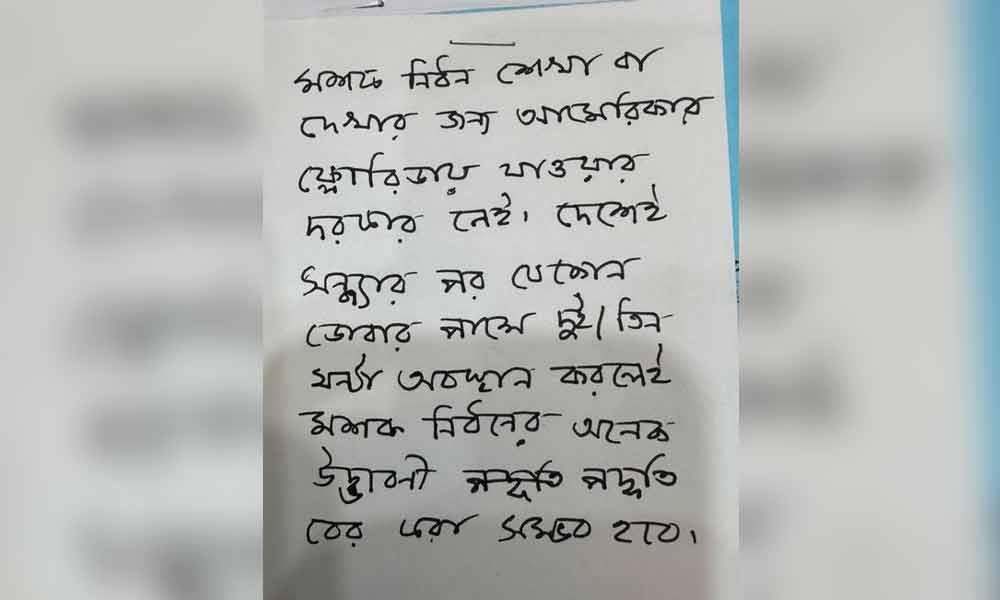 মশক নিধন শেখা বা
দেখার জন্য আমেরিকার
ফ্লোরিডায় যাওয়ার
দরকার নেই। দেশেই
সন্ধ্যার পর যেকোন
ডোবার পাশে দুই/তিন
ঘন্টা অবস্থান করলেই
মশক নিধনের অনেক
উদ্ভাবনী পদ্ধতি পদ্ধতি
বের করা সম্ভব হবে।